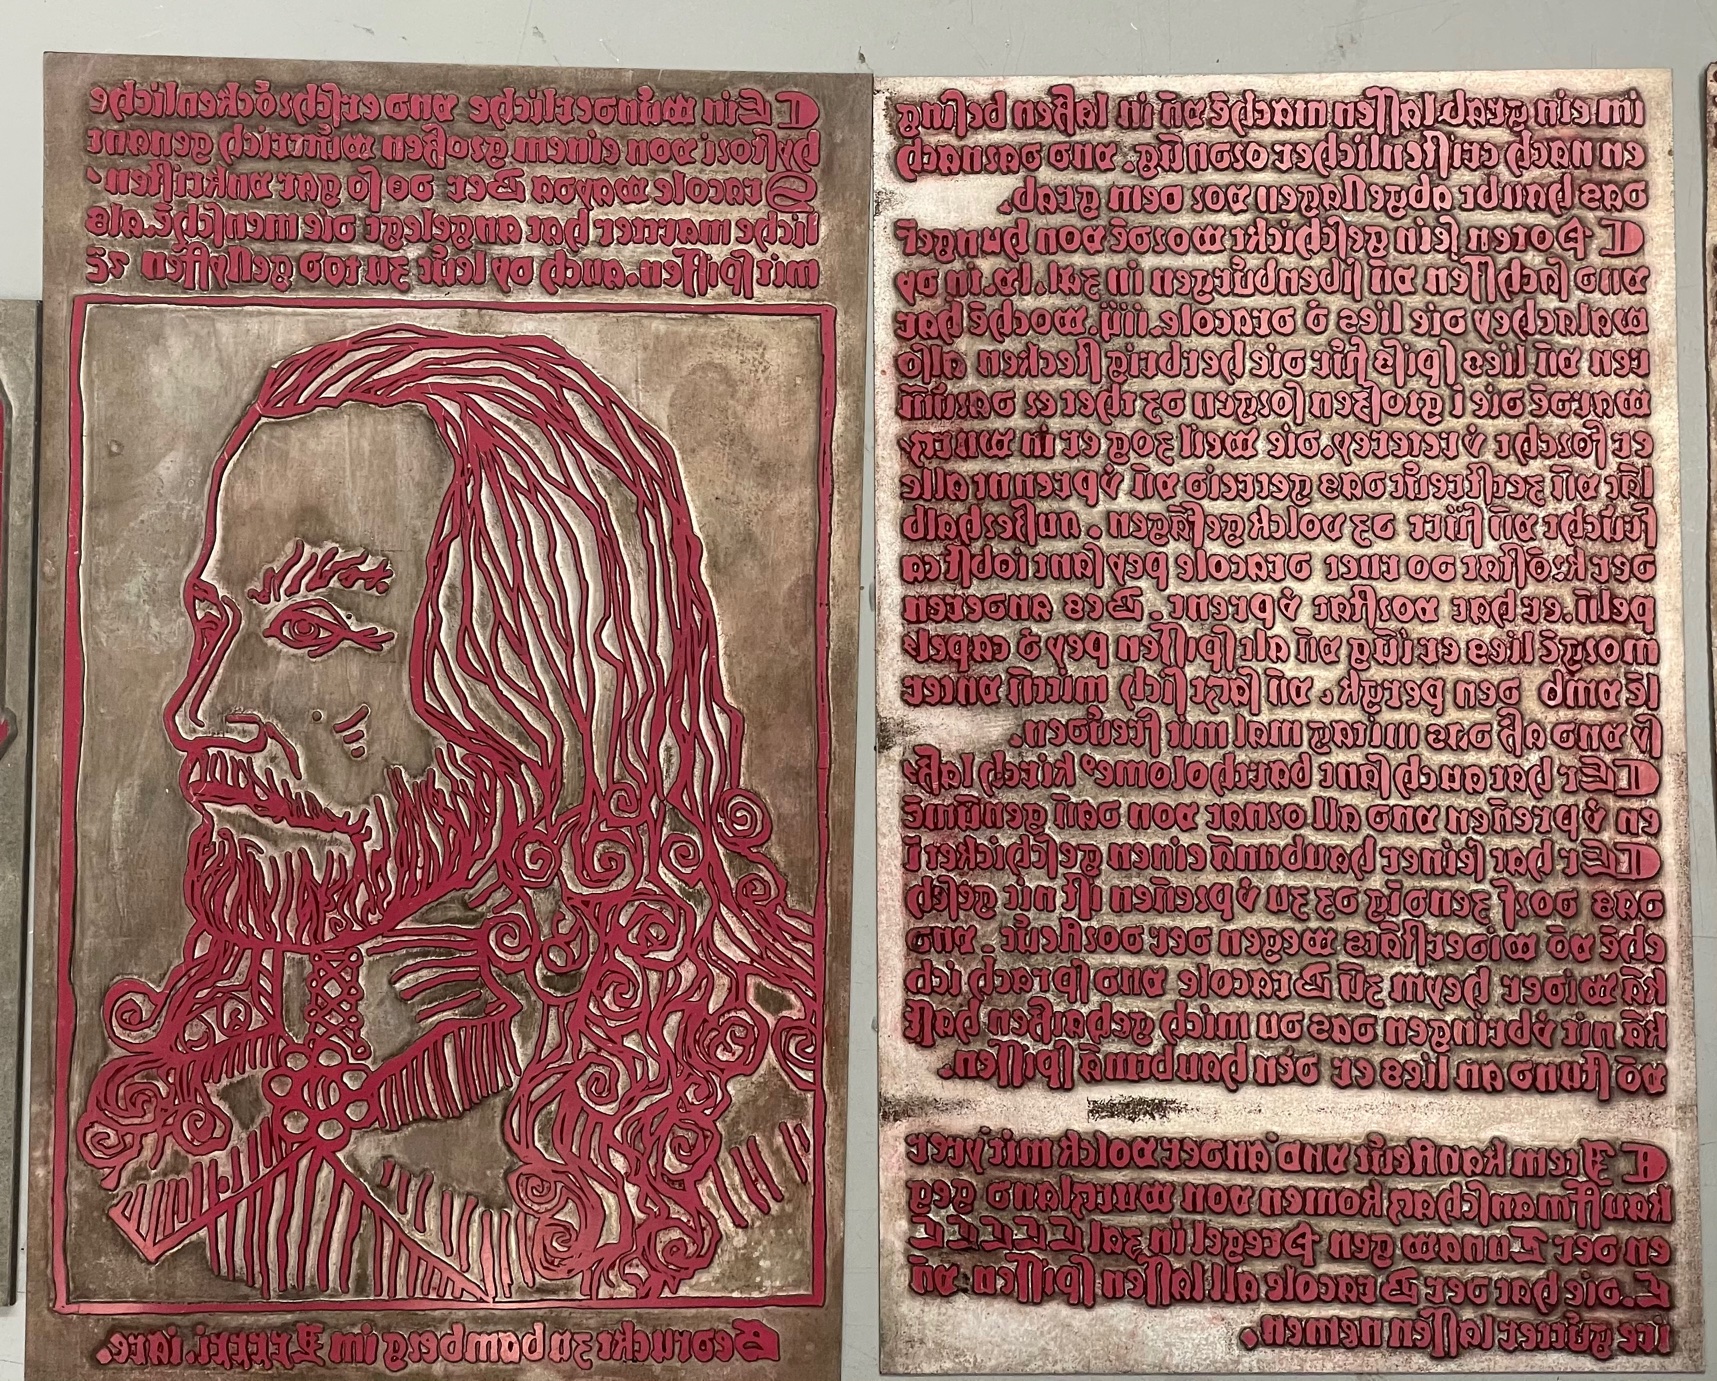 ¶ Ein wünderliche vnd erschröckenliche
hystori von einem großen wüttrich genant
Dracole wayda Der do so gar vnkristen-
liche martter hat angelegt die menschē. als
mit spissen. auch dy leüt zu tod geslyffen ⁊c̄
Gedruckt zu bamberg im Lxxxxi. iare.
im ein grab lassen machē vn̄ in laßen besing
en nach cristenlicher ordnūg. vnd darnach
das haubt abgeslagen vor dem grab.
¶ Poten sein geschickt wordē von hunger̄
vnd sachssen vn̄ sibenbürgen in zal. lv. in dy
walachey die lies d̓ dracole. iiij. wochē har
ren vn̄ lies spiß für die herbrig stecken also
wardē die i großen sorgen dz thet er darūm
er forcht v̓reterey. die weil zog er in wurtz
lāt vn̄ zerstreüt das getreid vn̄ v̓prennt alle
frücht vn̄ fürt dz volck gefāgen. außerhalb
der do ruet dracole pey sant iobs ca
peln̄. er hat vorstat v̓prent. Des anderen
morgē lies er iūg vn̄ alt spissen pey d̓ capel
lē vmb den pergk, vn̄ satzt sich mittn̄ vnter
sy vnd aß das mitag mal mit freüden.
¶ Er hat auch sant bartholome⁹ kirch laß
en v̓preñen vnd all ornat von dan̄ genūmē
¶ Er hat seiner haubtmā einen geschickt i
das dorf zendīg dz zu v̓preñen ist nit gesch
ehē vō widerstāts wegen der dorfleüt. vnd
kā wider heym zū Dracole vnd sprach ich
kā nit v̓bringen das du mich gehaißen hast
vō stund an lies er den haubtmā spissen.
¶ Item kaufleüt vnd ander volck mit yrer
kauffmanschatz komen von wurtzland geg
en der Tunaw gen Pregel in zal CCCCCC
C. die hat der Dracole all lassen spissen vn̄
ire gütter lassen nemen.